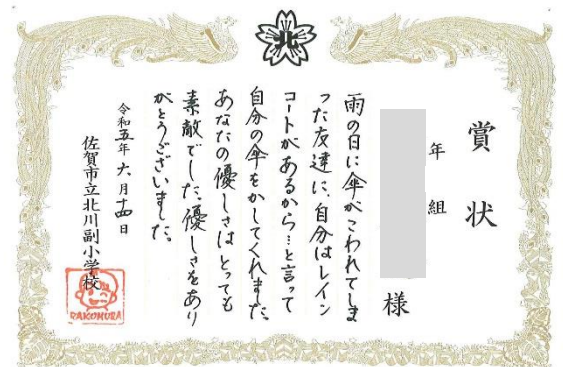 北
賞状
年
組
様
雨の日に傘がこわれてしま
った友達に、自分はレイン
コートがあるから…と言って
自分の傘をかしてくれました。
あなたの優しさはとっても
素敵でした。優しさをあり
がとうございました。
令和五年六月十四日
佐賀市立北川副小学校